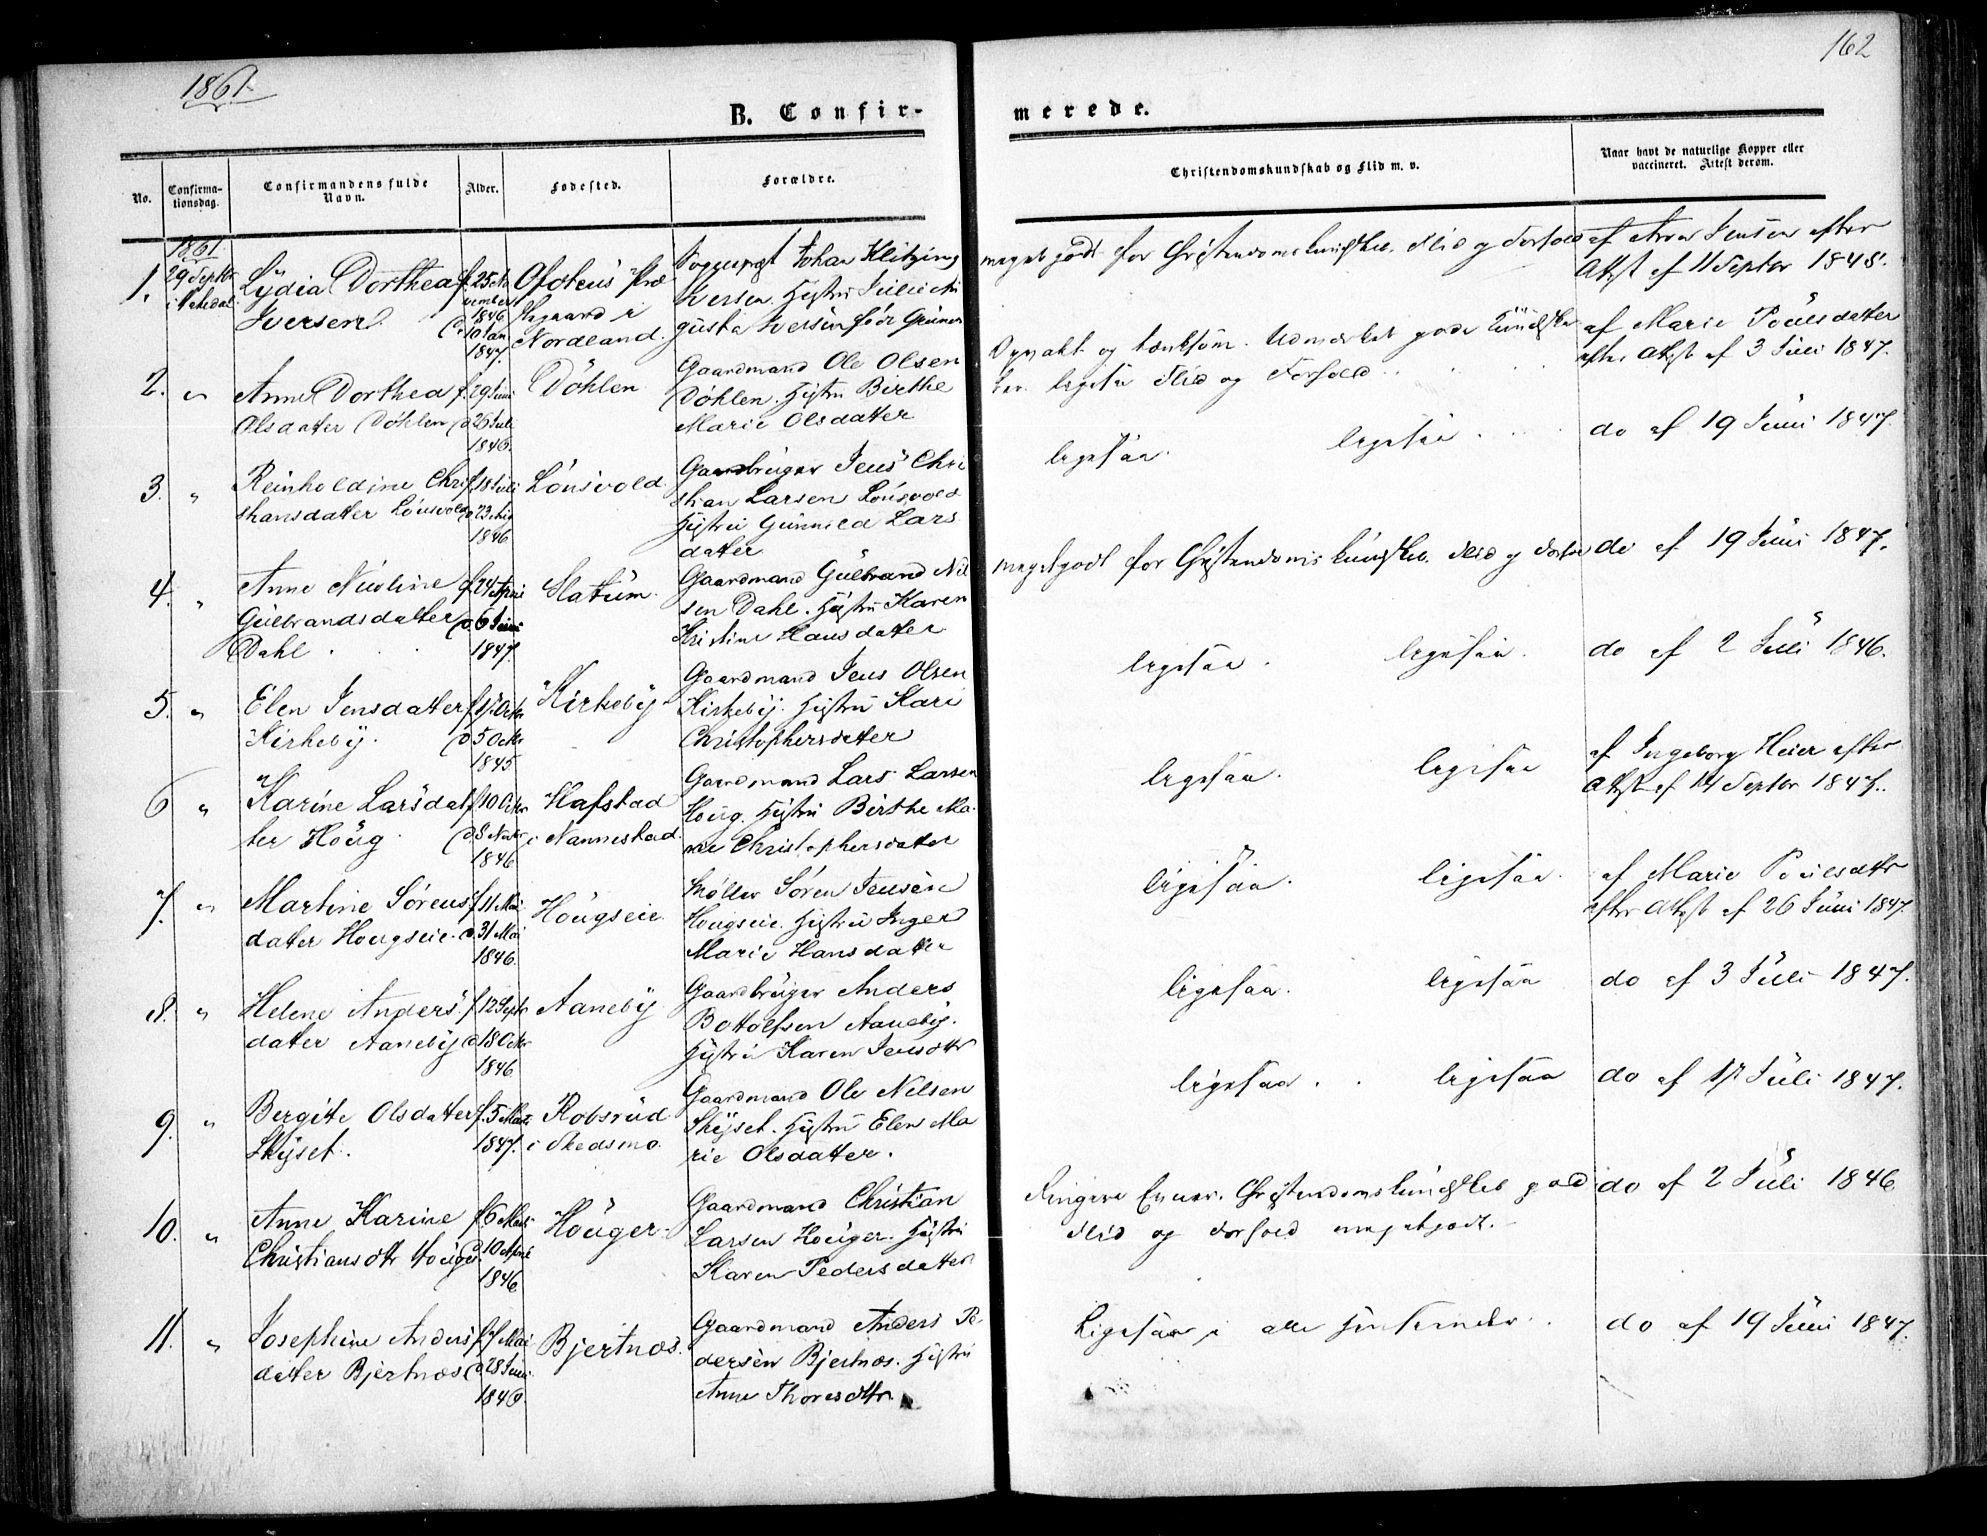 1861.
162
B. Confir-
merede.
No.
Confirma-
tionsdag.
Confirmandens fulde
Navn.
Alder.
Fødested.
Forældre.
Christendomskundskab og Flid m. v.
Naar havt de naturlige Kopper eller
vaccineret. Attest derom.
1861
1.
29 Septbr
i Hakedal
Lydia Dorthea
Iversen
f. 25 No
vember
1846
d. 10 Jan
1847.
Ofotens Præ
stegaard i
Nordland.
Sognepræst Johan Klitzing
Iversen. Hustru Julie Au
gusta Iversen født Grüner
meget godt for Christendomskundskab, Flid og Forhold
af Anne Jensen efter
Attest af 11 Septbr 1848.
2.
"
Anne Dorthea
Olsdater Döhlen
f. 29 Juni
d. 26 Juli
1846.
Döhlen
Gaardmand Ole Olsen
Döhlen. Hustru Birthe
Marie Olsdatter
Opvakt og tænksom. Udmærket gode Kundska
ber. ligesaa Flid og Forhold
af Marie Poulsdatter
efter Attest af 3 Juli 1847.
3.
"
Reinholdine Chri
stiansdatter Lönsvold
f. 18 Juli
d. 23 Aug
1846
Lönsvold
Gaardbruger Jens Chri
stian Larsen Lönsvold
Hustru Gunnild Lars
datter
ligesaa
ligesaa
do af 19 Juni 1847.
4.
"
Anne Nicoline
Gulbrandsdatter
Dahl
f. 24 April
d. 6 Juni
1847.
Slatum.
Gaardmand Gulbrand Nil
sen Dahl. Hustru Karen
Kristine Hansdatter
meget godt for Christendomskundskab, Flid og Forhold
do af 19 Juni 1847.
5.
"
Elen Jensdatter
Kirkeby.
f. 17 Octbr
d. 5 Octbr
1845
Kirkeby
Gaardmand Jens Olsen
Kirkeby. Hustru Kari
Christophersdatter
ligesaa
ligesaa.
do af 2 Juli 1846.
6
"
Karine Larsdat
ter Houg
f. 10 Octbr
d. 8 Novbr
1846
Hafstad
i Nannestad.
Gaardmand Lars Larsen
Houg. Hustru Birthe Ma
rie Christophersdatter
ligesaa.
ligesaa
af Ingeborg Heier efter
Attest af 14 Septbr 1847.
7.
"
Martine Sörens
datter Hougseie.
f. 11 Mai
d. 31 Mai
1846.
Hougseie.
Møller Sören Jensen
Hougseie. Hustru Inger
Marie Hansdatter
ligesaa.
ligesaa.
af Marie Poulsdtr
efter Attest af 26 Juni 1847.
8.
"
Helene Anders
dater Aaneby
f. 12 Septbr
d. 18 Octbr
1846
Aaneby
Gaardbruger Anders
Bottolfsen Aaneby.
Hustru Karen Jensdtr
ligesaa.
ligesaa
do af 3 Juli 1847.
9.
"
Bergite Olsdater
Skyset.
f. 5 Marts
1847.
Robsrud
i Skedsmo.
Gaardmand Ole Nilsen
Skyset. Hustru Elen Ma
rie Olsdatter.
ligesaa
ligesaa
do af 17 Juli 1847.
10.
"
Anne Karine
Christiansdtr Houger
f. 6 Marts
d. 10 April
1846
Houger
Gaardmand Christian
Larsen Houger. Hustru
Karen Pedersdatter
Ringere Evner. Christendomskundskab god
Flid og Forhold meget godt.
do af 2 Juli 1846
11.
"
Josephine Anders
datter Bjertnæs
f. 7 Mai
d. 28 Juni
1846.
Bjertnæs.
Gaardmand Anders Pe-
dersen Bjertnæs. Hustru
Anne Thoresdtr.
Ligesaa i alle Henseender.
do af 19 Juni 1847.